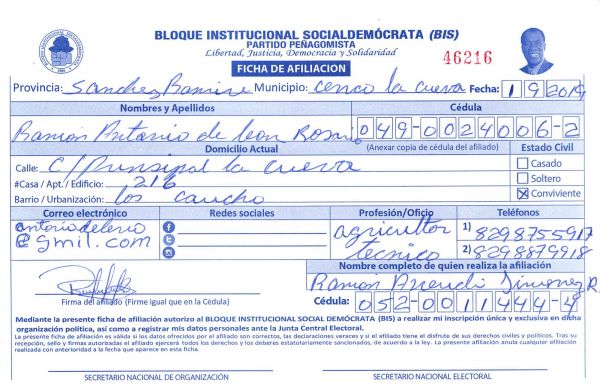 BLOQUE INSTITUCIONAL SOCIALDEMÓCRATA (BIS)
PARTIDO PEÑAGOMISTA
Libertad, Justicia, Democracia y Solidaridad
46216
FICHA DE AFILIACION
Provincia: Sanchez Ramire Municipio: Cenco la Cueva Fecha: 1 9 2019
Nombres y Apellidos Cédula
Ramon Antonio de leon Rosario 049-0024006-2
Domicilio Actual (Anexar copia de cédula del afiliado) Estado Civil
Calle: C/ Prinsipal la Cueva
Casado
#Casa / Apt. / Edificio: 216
Soltero
Barrio / Urbanización: los caucho
Conviviente
Correo electrónico Redes sociales Profesión/Oficio Teléfonos
antoniodeleno
@gmil.com
agricultor
tecnico
1) 8298755917
2) 8298879918
Nombre completo de quien realiza la afiliación
Ramon Simonez R.
Firma del afiliado (Firme igual que en la Cédula)
Cédula: 052-0011444-4
Mediante la presente ficha de afiliación autorizo al BLOQUE INSTITUCIONAL SOCIAL DEMÓCRATA (BIS) a realizar mi inscripción única y exclusiva en dicha
organización política, así como a registrar mis datos personales ante la Junta Central Electoral.
La presente ficha de afiliación es válida si los datos ofrecidos por el afiliado son correctos, las declaraciones veraces y si el afiliado tiene el disfrute de sus derechos civiles y políticos. Tras su
recepción, sello y firmas autorizadas el afiliado ejercerá todos los derechos y los deberes estatutariamente sancionados, de acuerdo a la ley. La presente afiliación anula cualquier afiliación
realizada con anterioridad a la fecha que aparece en esta ficha.
SECRETARIO NACIONAL DE ORGANIZACIÓN SECRETARIO NACIONAL ELECTORAL